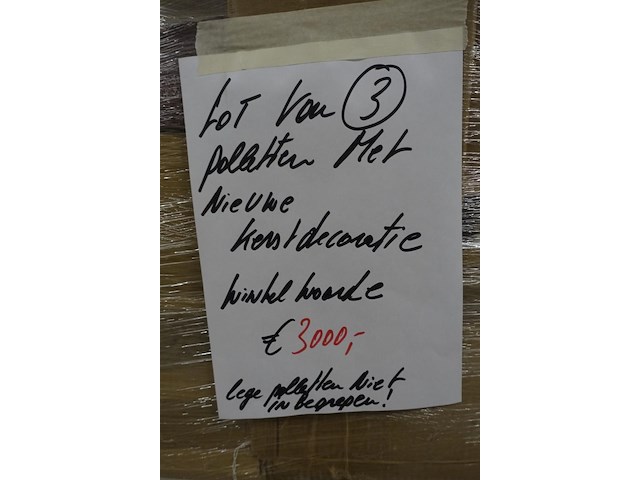 Lot van 3
palletten Met
Nieuwe
kerstdecoratie
winkel waarde
€ 3000,-
lege palletten Niet
inbegrepen!